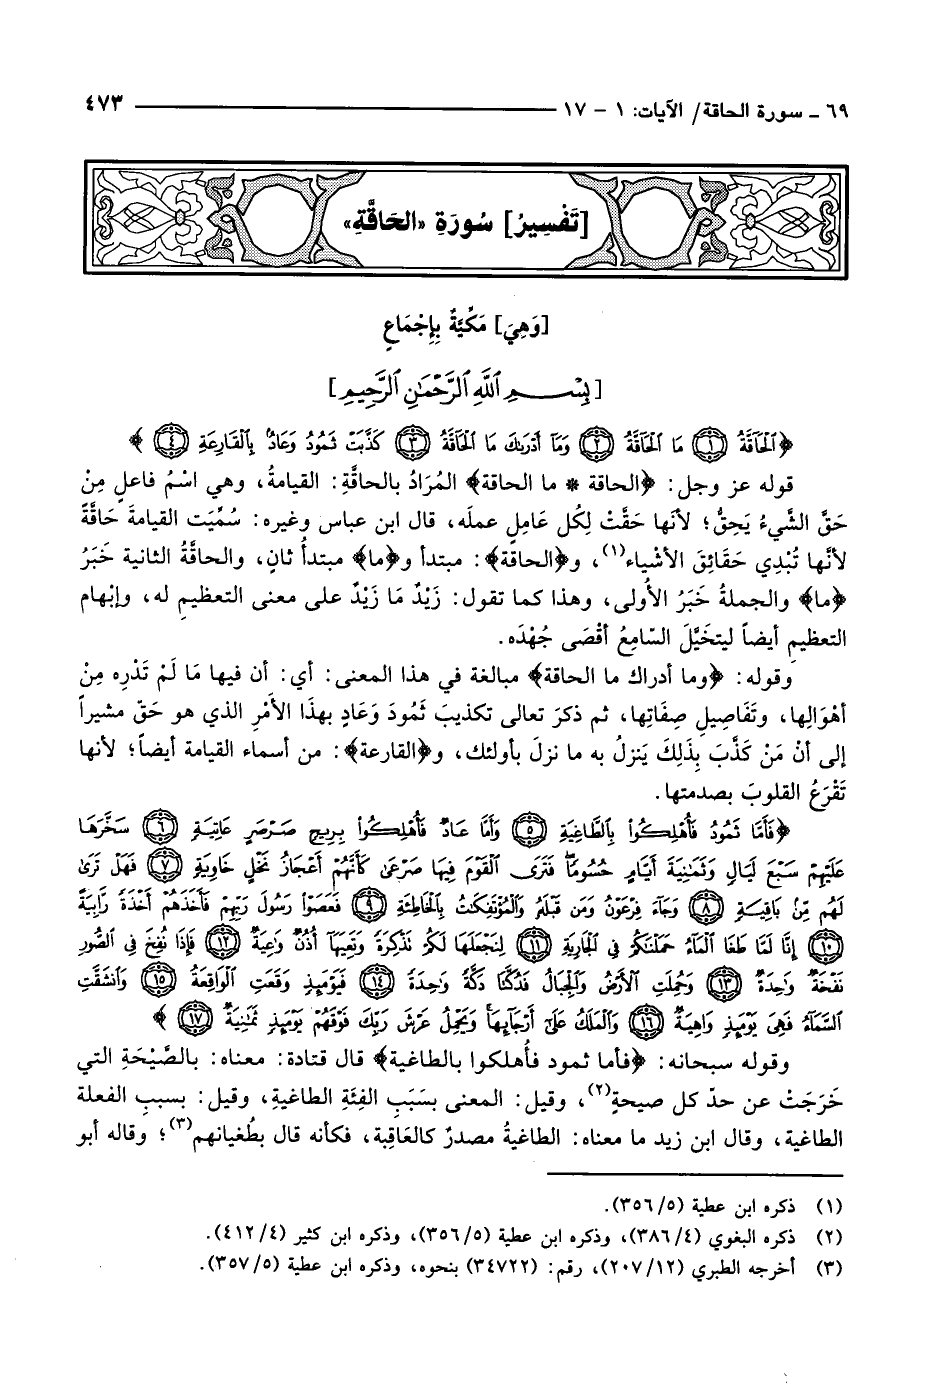 ٦٩ ـ سورة الحاقة/ الآيات: ١ - ١٧ ٤٧٣
[تَفْسِيرُ] سُورَةِ «الحَاقَّةِ»
[وَهِيَ] مَكِّيَّةٌ بِإجْمَاعٍ
[بِسْمِ اللَّهِ الرَّحْمَٰنِ الرَّحِيمِ]
﴿الْحَاقَّةُ ١ مَا الْحَاقَّةُ ٢ وَمَا أَدْرَاكَ مَا الْحَاقَّةُ ٣ كَذَّبَتْ ثَمُودُ وَعَادٌ بِالْقَارِعَةِ ٤﴾
قوله عز وجل: ﴿الحاقة * ما الحاقة﴾ المُرَادُ بالحاقَّةِ: القيامةُ، وهي اسْمُ فاعلٍ مِنْ
حَقَّ الشَّيءُ يَحِقُّ؛ لأنها حَقَّتْ لِكُلِ عَامِلٍ عملَه، قال ابن عباس وغيره: سُمِّيَت القيامةَ حَاقَّةً
لأنَّها تُبْدِي حَقَائِقَ الأشْياءِ(١)، و﴿الحاقة﴾: مبتدأ و﴿ما﴾ مبتدأُ ثانٍ، والحاقَّةُ الثانية خَبَرُ
﴿ما﴾ والجملةُ خَبَرُ الأُولى، وهذا كما تقول: زَيْدٌ مَا زَيْدٌ على معنى التعظيمِ له، وإبْهام
التعظيمِ أيضاً ليتخَيَّلَ السّامِعُ أقْصَى جُهْدَه.
وقوله: ﴿وما أدراك ما الحاقة﴾ مبالغة في هذا المعنى: أي: أن فيها مَا لَمْ تَدْرِه مِنْ
أهْوَالِها، وتَفَاصِيلِ صِفَاتِها، ثم ذكرَ تعالى تكذيبَ ثَمُودَ وَعَادٍ بهذَا الأمْرِ الذي هو حَقّ مشيراً
إلى أنْ مَنْ كَذَّبَ بِذَلِكَ يَنزلُ به ما نزلَ بأولئك، و﴿القارعة﴾: من أسماء القيامة أيضاً؛ لأنها
تَقْرَعُ القلوبَ بصدمتها.
﴿فَأَمَّا ثَمُودُ فَأُهْلِكُوا بِالطَّاغِيَةِ ٥ وَأَمَّا عَادٌ فَأُهْلِكُوا بِرِيحٍ صَرْصَرٍ عَاتِيَةٍ ٦ سَخَّرَهَا
عَلَيْهِمْ سَبْعَ لَيَالٍ وَثَمَانِيَةَ أَيَّامٍ حُسُومًا فَتَرَى الْقَوْمَ فِيهَا صَرْعَىٰ كَأَنَّهُمْ أَعْجَازُ نَخْلٍ خَاوِيَةٍ ٧ فَهَلْ تَرَىٰ
لَهُم مِّنْ بَاقِيَةٍ ٨ وَجَاءَ فِرْعَوْنُ وَمَن قَبْلَهُ وَالْمُؤْتَفِكَاتُ بِالْخَاطِئَةِ ٩ فَعَصَوْا رَسُولَ رَبِّهِمْ فَأَخَذَهُمْ أَخْذَةً رَابِيَةً
١٠ إِنَّا لَمَّا طَغَا الْمَاءُ حَمَلْنَاكُمْ فِي الْجَارِيَةِ ١١ لِنَجْعَلَهَا لَكُمْ تَذْكِرَةً وَتَعِيَهَا أُذُنٌ وَاعِيَةٌ ١٢ فَإِذَا نُفِخَ فِي الصُّورِ
نَفْخَةٌ وَاحِدَةٌ ١٣ وَحُمِلَتِ الْأَرْضُ وَالْجِبَالُ فَدُكَّتَا دَكَّةً وَاحِدَةً ١٤ فَيَوْمَئِذٍ وَقَعَتِ الْوَاقِعَةُ ١٥ وَانشَقَّتِ
السَّمَاءُ فَهِيَ يَوْمَئِذٍ وَاهِيَةٌ ١٦ وَالْمَلَكُ عَلَىٰ أَرْجَائِهَا وَيَحْمِلُ عَرْشَ رَبِّكَ فَوْقَهُمْ يَوْمَئِذٍ ثَمَانِيَةٌ ١٧﴾
وقوله سبحانه: ﴿فأما ثمود فأهلكوا بالطاغية﴾ قال قتادة: معناه: بالصَّيْحَةِ التي
خَرَجَتْ عن حدّ كل صيحةٍ(٢)، وقيل: المعنى بسَبَبِ الفِئَةِ الطاغيةِ، وقيل: بسببِ الفعلة
الطاغية، وقال ابن زيد ما معناه: الطاغيةُ مصدرٌ كالعَاقِبة، فكأنه قال بطُغيانهم(٣)؛ وقاله أبو
(١) ذكره ابن عطية (٣٥٦/٥).
(٢) ذكره البغوي (٣٨٦/٤)، وذكره ابن عطية (٣٥٦/٥)، وذكره ابن كثير (٤١٢/٤).
(٣) أخرجه الطبري (٢٠٧/١٢)، رقم: (٣٤٧٢٢) بنحوه، وذكره ابن عطية (٣٥٧/٥).